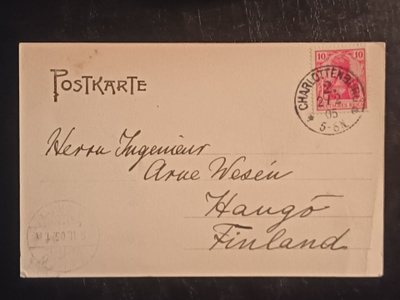 POSTKARTE
10 10
CHARLOTTENBURG
2
05
5-6N
Herrn Ingenieur
Arne Wesén
Hangö
Finland